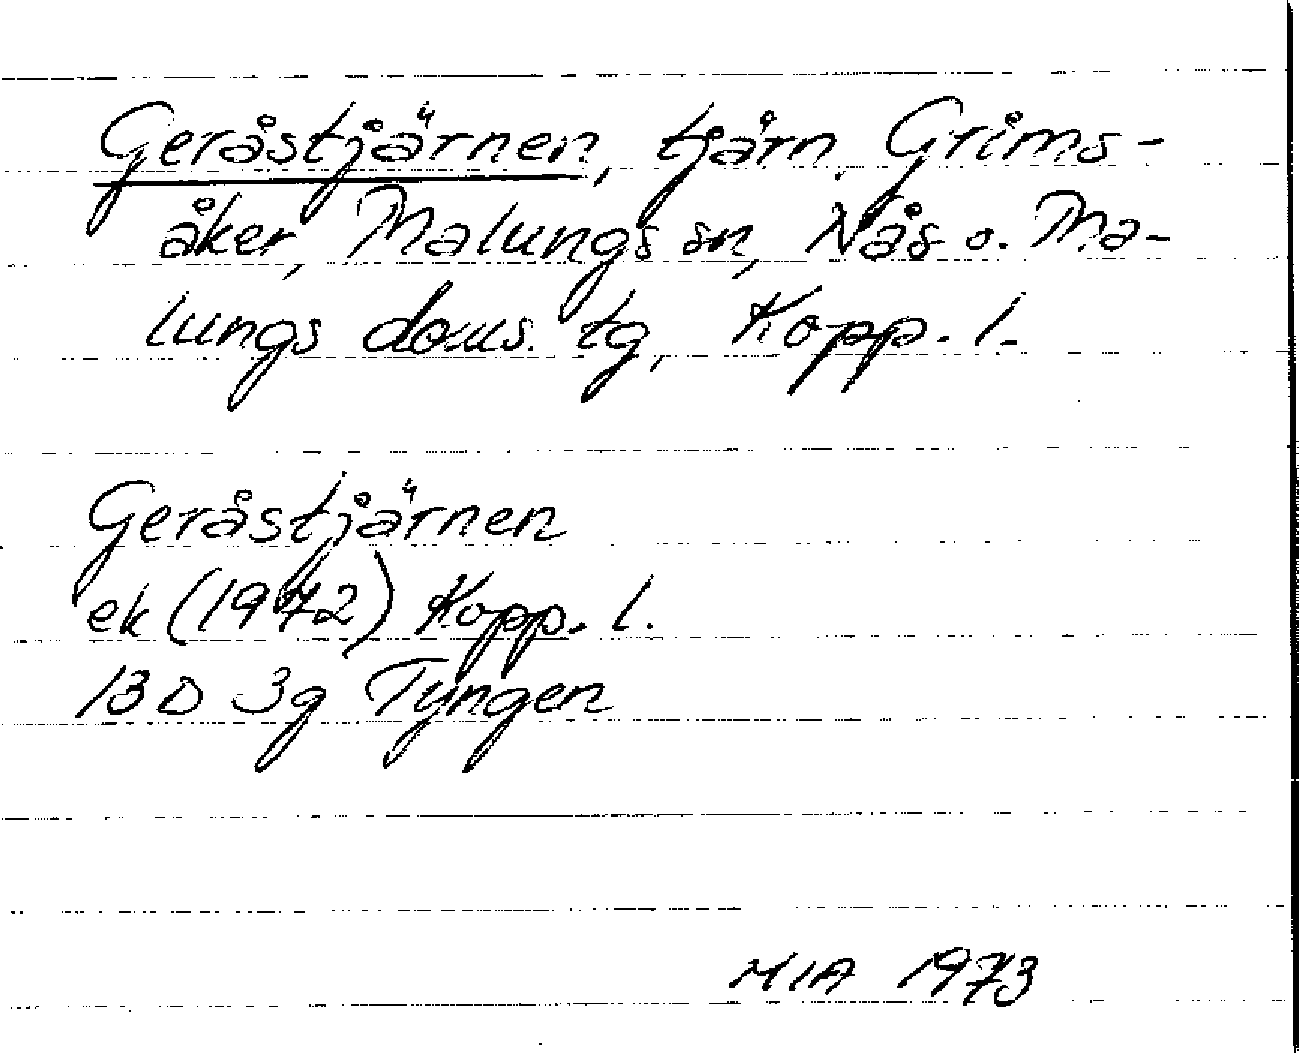 Geråstjärnen, tjärn, Grims-
åker, Malungs sn, Nås o. Ma-
lungs doms. tg, Kopp. l.
Geråstjärnen
ek (1972) Kopp. l.
13 D 3g Tyngen
MIA 1973